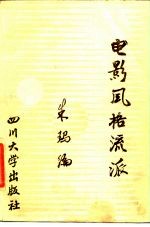 电影风格流派
朱玛编
四川大学出版社